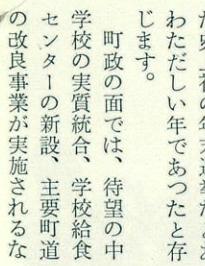 わただしい年であつたと存
じます。
町政の面では、待望の中
学校の実質統合、学校給食
センターの新設、主要町道
の改良事業が実施されるな